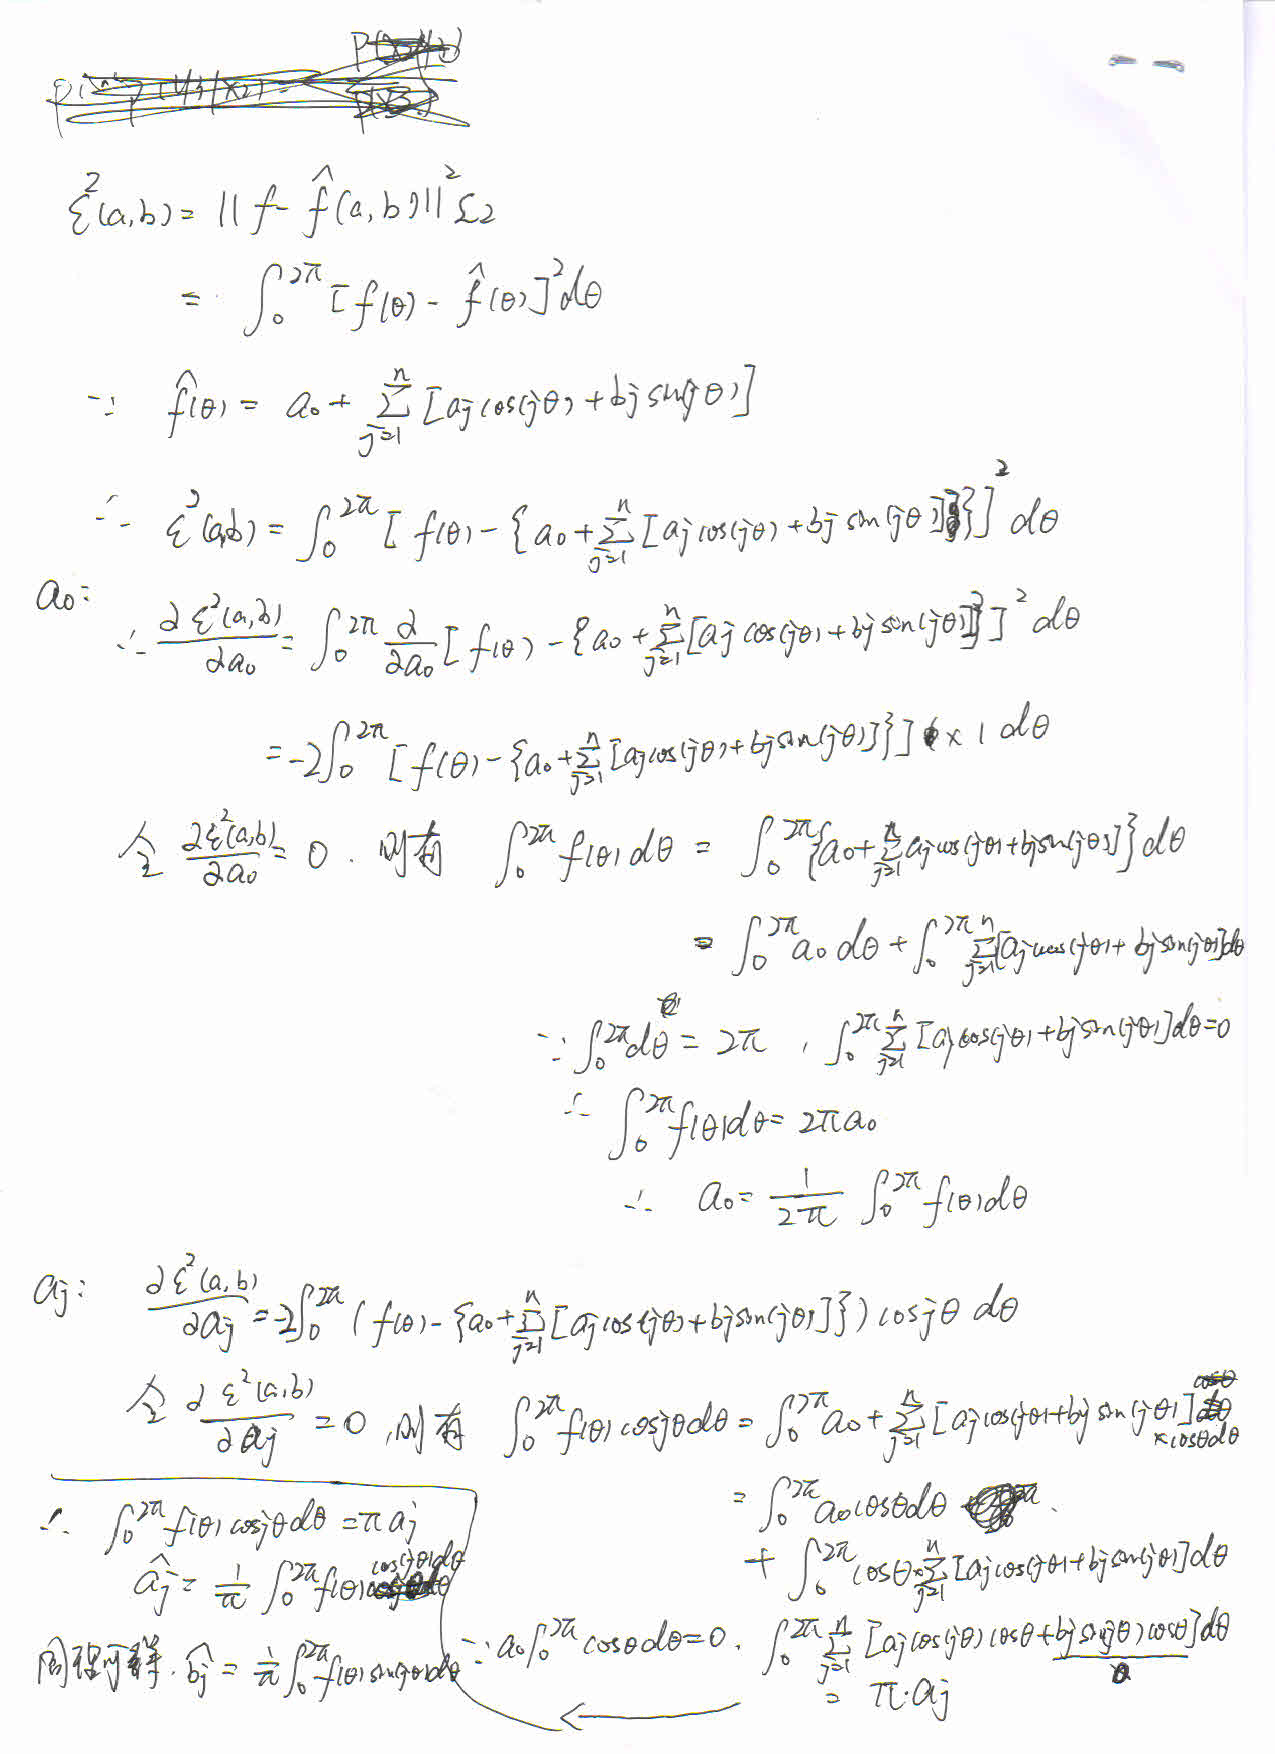 ε²(a,b) = ||f - f̂(a,b)||² £2
= ∫₀^2π [f(θ) - f̂(θ)]² dθ
∵ f̂(θ) = a₀ + Σ_{j=1}^n [aj cos(jθ) + bj sin(jθ)]
∴ ε²(a,b) = ∫₀^2π [f(θ) - {a₀ + Σ_{j=1}^n [aj cos(jθ) + bj sin(jθ)]}]² dθ
a₀:
∴ ∂ε²(a,b)/∂a₀ = ∫₀^2π ∂/∂a₀ [f(θ) - {a₀ + Σ_{j=1}^n [aj cos(jθ) + bj sin(jθ)]}]² dθ
= -2∫₀^2π [f(θ) - {a₀ + Σ_{j=1}^n [aj cos(jθ) + bj sin(jθ)]}] × 1 dθ
令 ∂ε²(a,b)/∂a₀ = 0. 则有 ∫₀^2π f(θ) dθ = ∫₀^2π {a₀ + Σ_{j=1}^n aj cos(jθ) + bj sin(jθ)]} dθ
= ∫₀^2π a₀ dθ + ∫₀^2π Σ_{j=1}^n [aj cos(jθ) + bj sin(jθ)] dθ
∵ ∫₀^2π dθ = 2π , ∫₀^2π Σ_{j=1}^n [aj cos(jθ) + bj sin(jθ)] dθ = 0
∴ ∫₀^2π f(θ) dθ = 2πa₀
∴ a₀ = 1/2π ∫₀^2π f(θ) dθ
aj: ∂ε²(a,b)/∂aj = -2∫₀^2π (f(θ) - {a₀ + Σ_{j=1}^n [aj cos(jθ) + bj sin(jθ)]}) cosjθ dθ
令 ∂ε²(a,b)/∂aj = 0, 则有 ∫₀^2π f(θ) cosjθ dθ = ∫₀^2π a₀ + Σ_{j=1}^n [aj cos(jθ) + bj sin(jθ)] × cosθ dθ
= ∫₀^2π a₀ cosθ dθ
+ ∫₀^2π cosθ × Σ_{j=1}^n [aj cos(jθ) + bj sin(jθ)] dθ
∵ a₀∫₀^2π cosθ dθ = 0. ∫₀^2π Σ_{j=1}^n [aj cos(jθ) cosθ + bj sin(jθ) cosθ] dθ
0
= π·aj
∴ ∫₀^2π f(θ) cosjθ dθ = π aj
âj = 1/π ∫₀^2π f(θ) cos(jθ) dθ
同理可得. b̂j = 1/π ∫₀^2π f(θ) sin(jθ) dθ